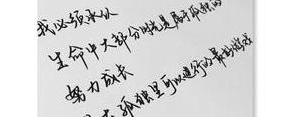 我必须承认
生命中大部分时光是属于孤独的
努力成长
在孤独里可以进行的最好的游戏